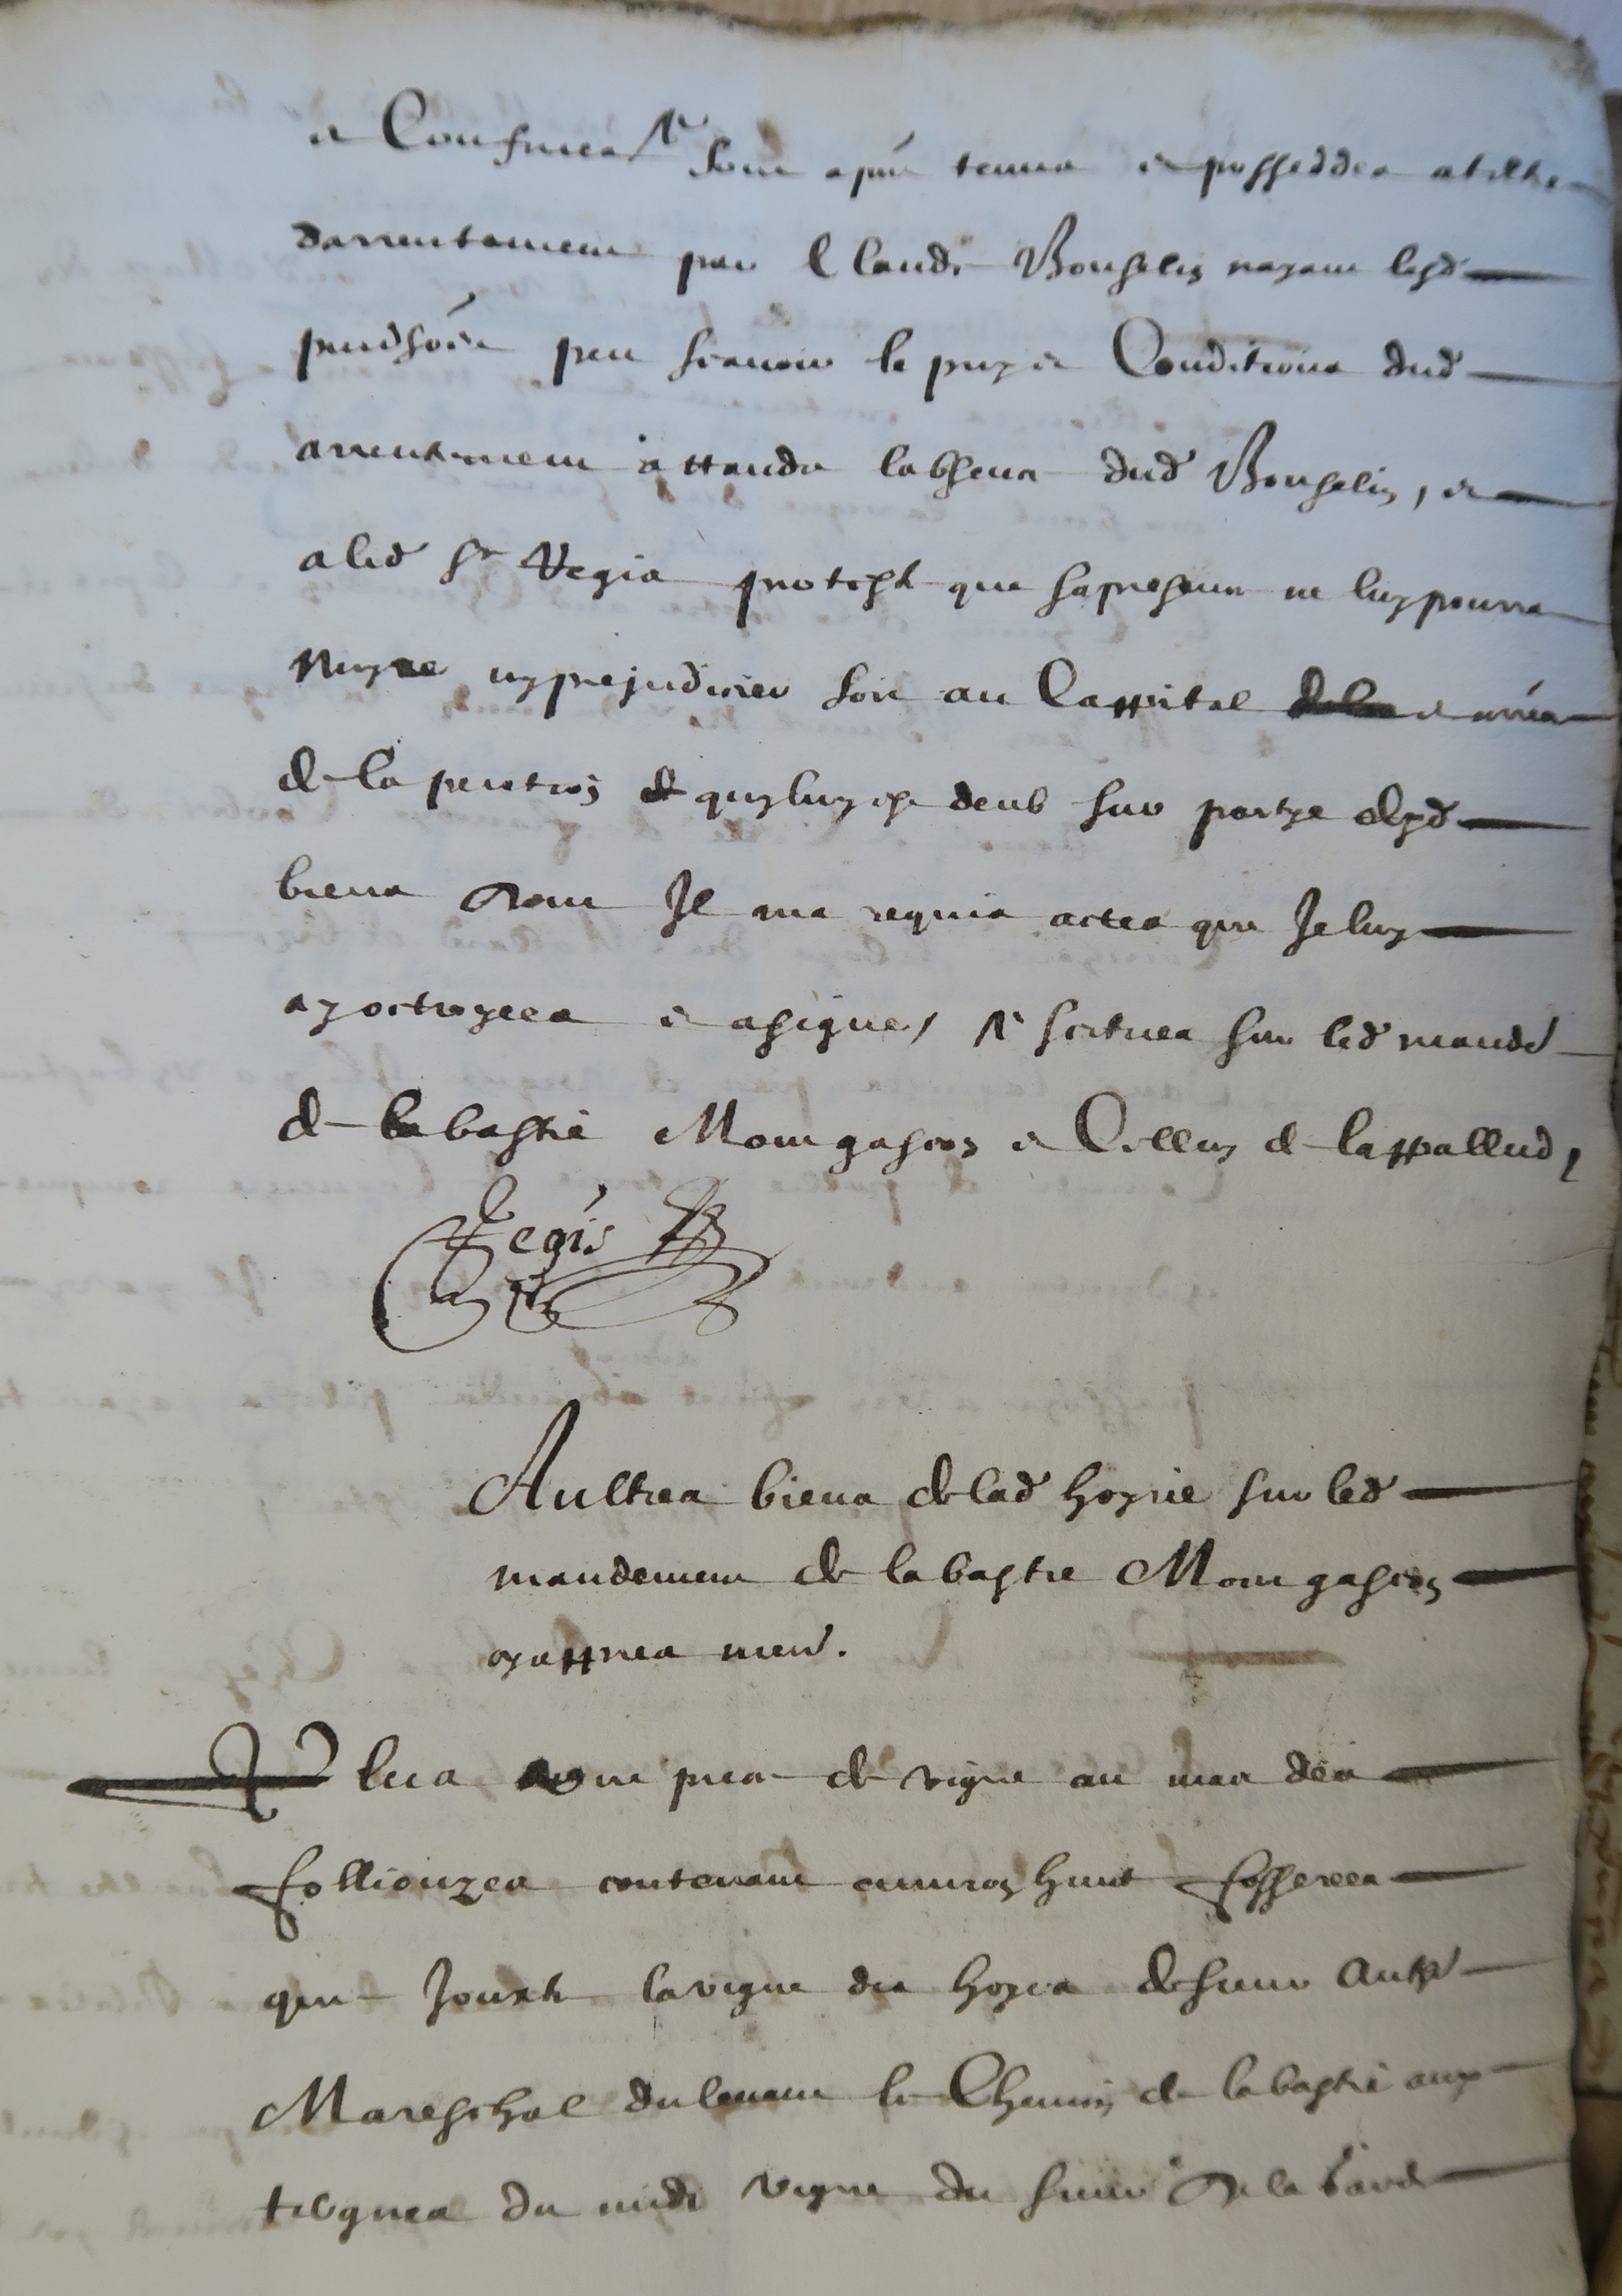 et Confines / sont a pnt tenus et posseddes a tiltre
darrentement par Claude Bouselin nayant lesd
prudhoes peu scavoir le prix et Conditions dud
arrentement attandu labsence dud Bouselin, et
a led Sr Regis protesté que sa presence ne luy pourra
nuyre ny prejudicier soit au Cappital et arres
de la pention quy luy est deub sur partye desd
biens dont Il ma requis actes que Je luy
ay octroyees et a signe / scitues sur led mande
de la bastie Montgascon et Celluy de lappallud,
Regis
Aultres biens de lad hoyrie sur led
mandement de la bastie Montgascon
cy appres men.
Plus une piece de vigne au mas des
follieuzes contenant environ huict fosserees
que Jouxte la vigne des hoyrs de sieur Anthe
Mareschal du levant le Chemin de la bastie aux
du midi vigne du sieur De la